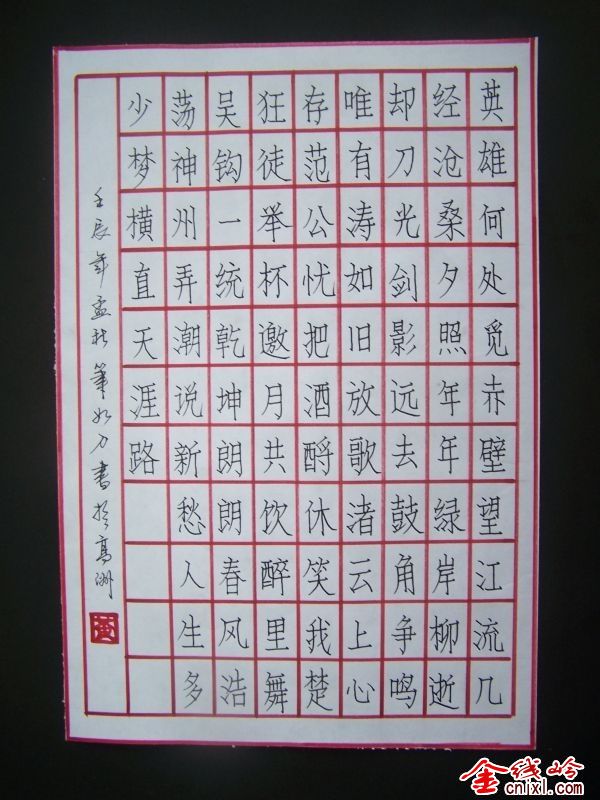 英雄何处觅赤壁望江流几
经沧桑夕照年年绿岸柳逝
却刀光剑影远去鼓角争鸣
唯有涛如旧放歌渚云上心
存范公忧把酒酹休笑我楚
狂徒举杯邀月共饮醉里舞
吴钩一统乾坤朗朗春风浩
荡神州弄潮说新愁人生多
少梦横直天涯路
壬辰年孟秋笔如刀書於高洲
金线岭
cnixl.com